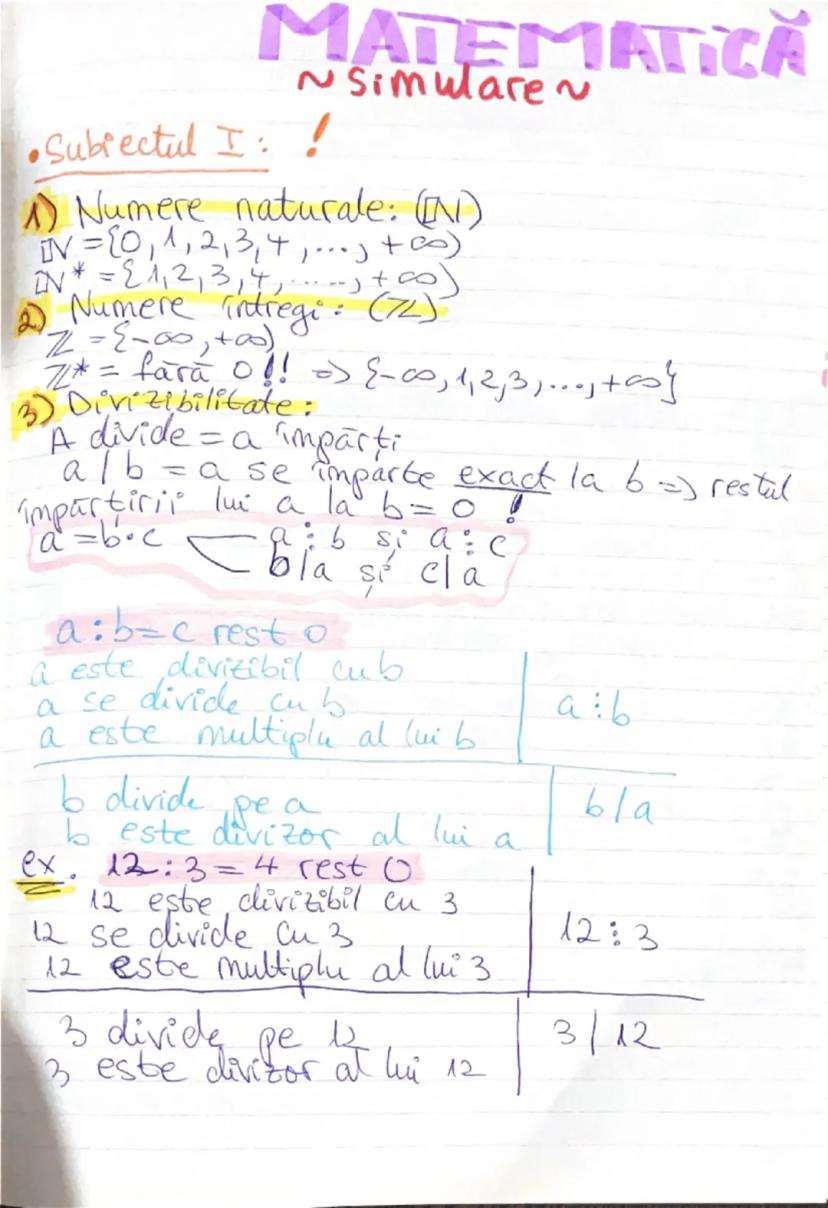 MATEMATICĂ
~Simulare~
•Subiectul I: !
1) Numere naturale: (ℕ)
ℕ={0,1,2,3,4,...,+∞)
ℕ*={1,2,3,4,.....,+∞)
2) Numere întregi: (ℤ)
ℤ={-∞,+∞)
ℤ*= fără 0!! => {-∞,1,2,3,...,+∞}
3) Divizibilitate:
A divide = a împărți
a/b = a se împarte exact la b => restul
împărțirii lui a la b=0 !
a=b·c a⋮b și a⋮c
b/a și c/a
a:b=c rest 0
a este divizibil cu b
a se divide cu b a⋮b
a este multiplu al lui b
b divide pe a b/a
b este divizor al lui a
ex. 12:3=4 rest 0
12 este divizibil cu 3
12 se divide cu 3 12⋮3
12 este multiplu al lui 3
3 divide pe 12 3/12
3 este divizor al lui 12